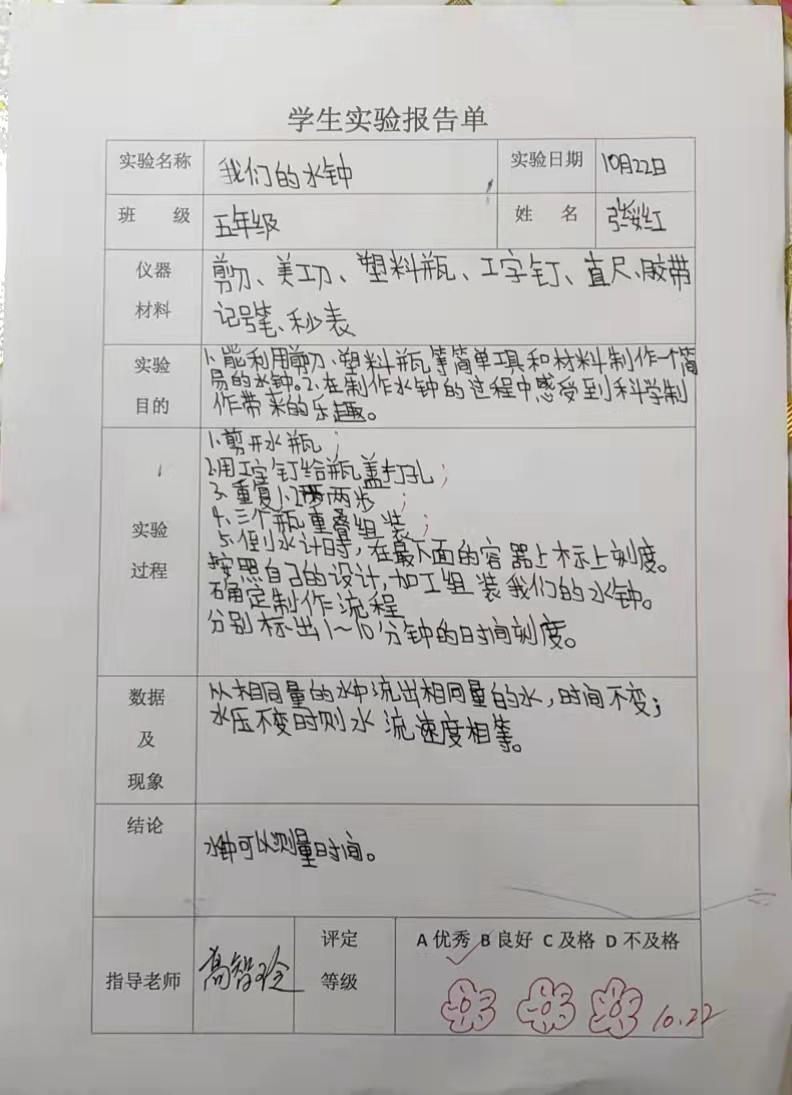 学生实验报告单
实验名称 我们的水钟 实验日期 10月22日
班 级 五年级 姓 名 张红
仪器 剪刀、美工刀、塑料瓶、工字钉、直尺、胶带
材料 记号笔、秒表
实验 1、能利用剪刀、塑料瓶等简单工具和材料制作一个简
易的水钟。2、在制作水钟的过程中感受到科学制
目的 作带来的乐趣。
1、剪开水瓶;
2、用工字钉给瓶盖打孔;
3、重复1、2两步;
4、三个瓶重叠组装;
实验 5、倒水计时,在最下面的容器上标上刻度。
过程 按照自己的设计,加工组装我们的水钟。
确定制作流程
分别标出1~10分钟的时间刻度。
数据 从相同量的水中流出相同量的水,时间不变;
及 水压不变时则水流速度相等。
现象
结论
水钟可以测量时间。
评定 A 优秀 B 良好 C 及格 D 不及格
指导老师 高智玲 等级
10.22